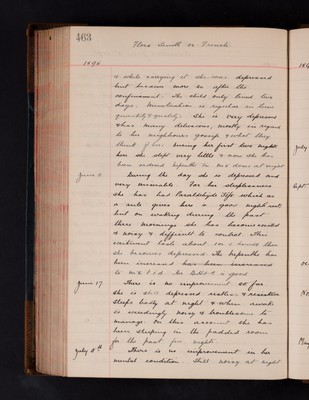 468
Flora Smith or French.
1896
& while carrying it she was depressed
but became more so after the
confinement. The child only lived two
days. Menstruation is regular in time
quantity & quality. She is very depressed
& has many delusions, mostly as regards
to her neighbours gossip & what they
think of her. During her first two nights
here she slept very little & now she has
been ordered
June
During the day she is depressed and
very miserable. For her sleeplessness
she has had Paraldehyde which as
a rule gives her a good night's rest
but on waking during the past
three mornings she has become excited
& noisy & difficult to control. This
excitement lasts about 1 or 2 hours then
she becomes depressed. The
been increased
to is good
June 17
There is no improvement so far
she is still depressed restless & resistive
Sleeps badly at night & when awake
is exceedingly noisy & troublesome to
manage. On this account she has
been sleeping in the padded room
for the past five nights.
July 8th
There is no improvement in her
mental condition. Still noisy at night
July
Sept
No
May